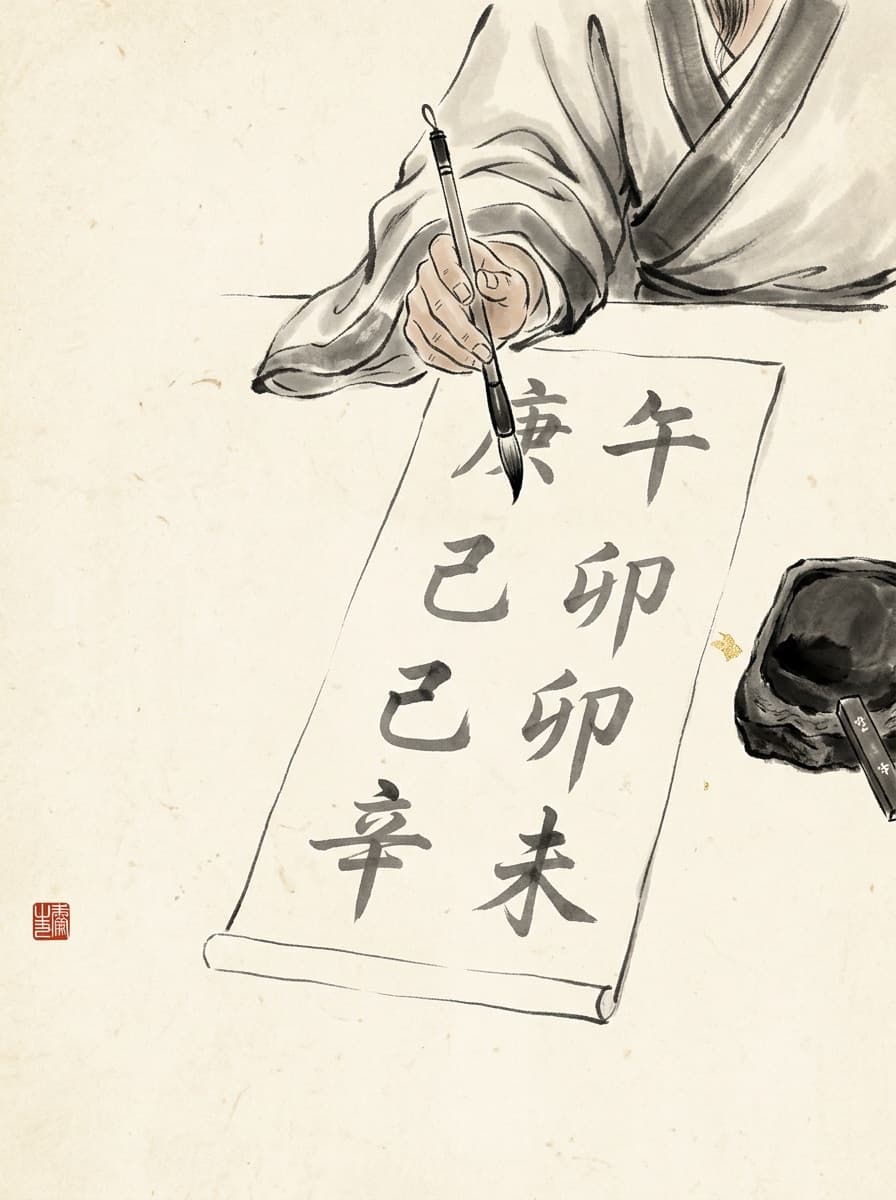 庚午
己卯
己卯
辛未